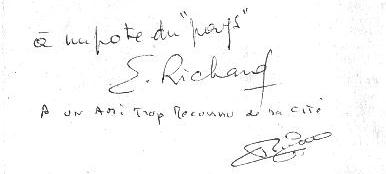 à un pote du "pays"
E. Richard
A UN AMi TROP Meconnu de sa Cité